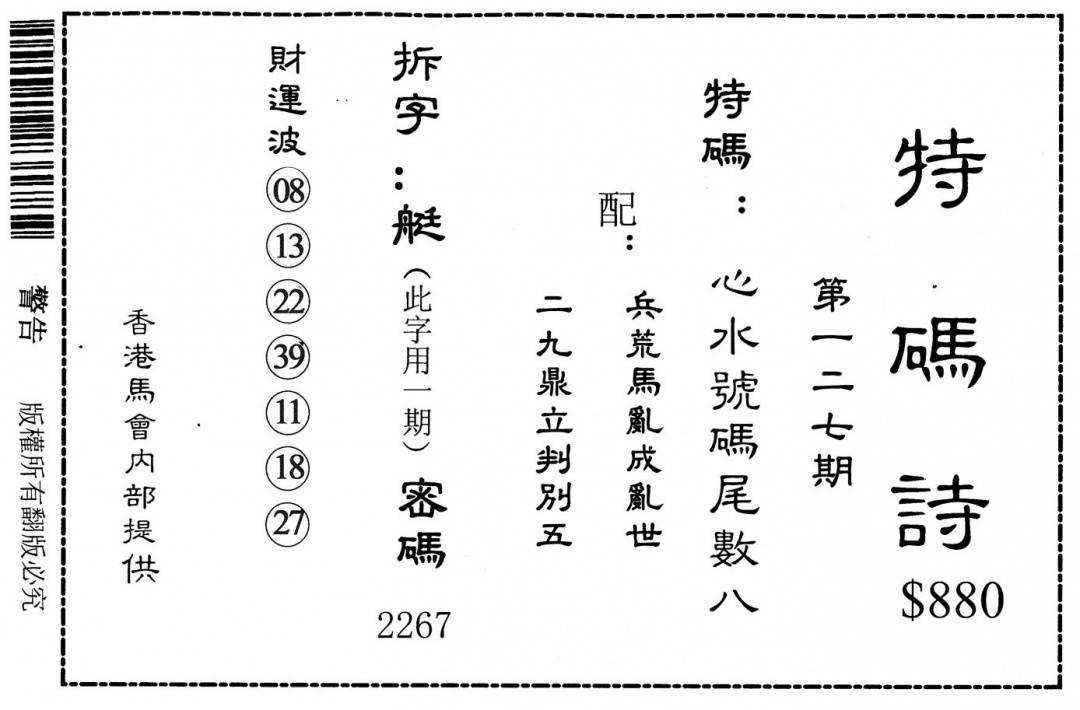 特碼詩
$880
第一二七期
特碼：心水號碼尾數八
配：
兵荒馬亂成亂世
二九鼎立判別五
拆字：艇(此字用一期)密碼
2267
財運波 08 13 22 39 11 18 27
香港馬會内部提供
警告 版權所有翻版必究